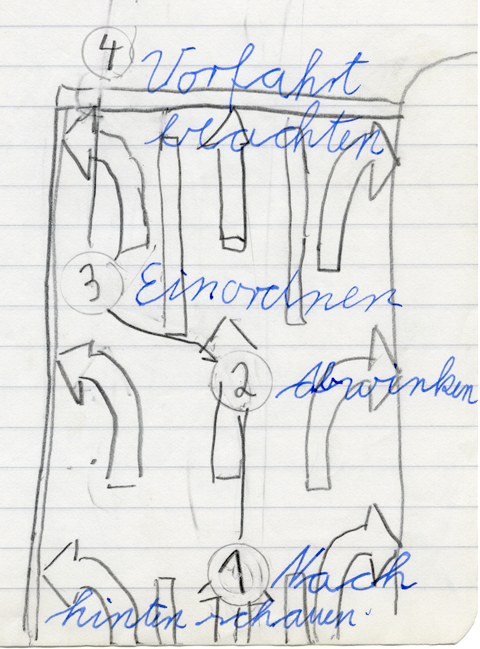 4 Vorfahrt
beachten
3 Einordnen
2 Abwinken
1 Nach
hinten schauen.